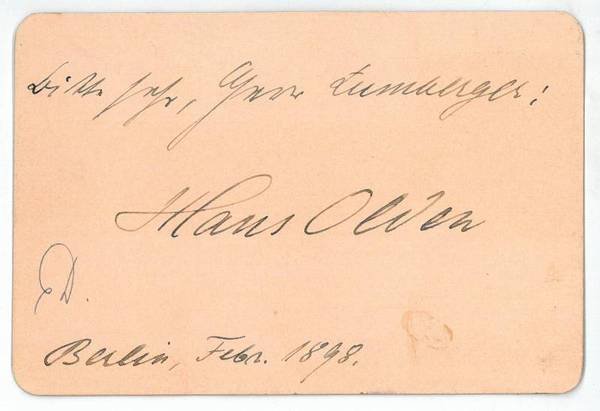 Bitte sehr, Herr Lumberger:
Hans Olden
D.
Berlin, Febr. 1898.